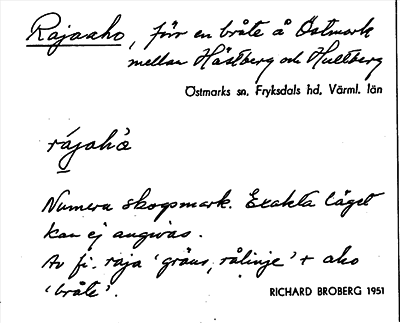 Rajaaho, förr en bråte å Östmark
mellan Hästberg och Hultberg
Östmarks sn. Fryksdals hd. Värml. län
rájahɔ̀
Numera skogsmark. Exakta läget
kan ej angivas.
Av fi. raja 'gräns, rålinje' + aho
'bråte'.
RICHARD BROBERG 1951